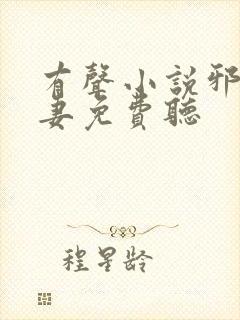 有聲小說邪
妻免費聽
程星龄